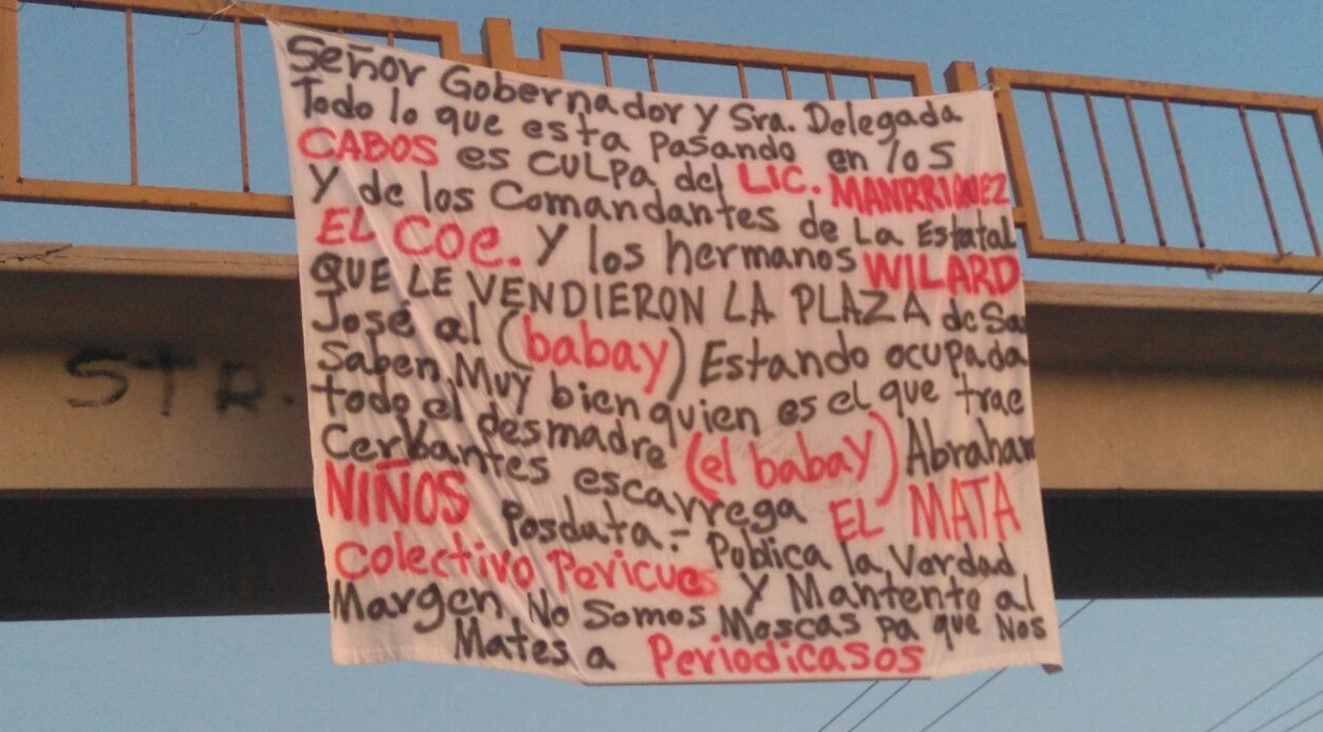 Señor Gobernador y Sra. Delegada
Todo lo que esta pasando en los
CABOS es CULPA del LIC. MANRRIQUEZ
Y de los Comandantes de La Estatal
EL COE. Y los hermanos WILARD
QUE LE VENDIERON LA PLAZA de Sa
José al (babay) Estando ocupada
Saben Muy bien quien es el que trae
todo el desmadre (el babay) Abraham
Cerbantes escarrega EL MATA
NIÑOS Posdata:- Publica la Verdad
Colectivo Pericues Y Mantente al
Margen No Somos Moscas pa que Nos
Mates a Periodicasos
STR.